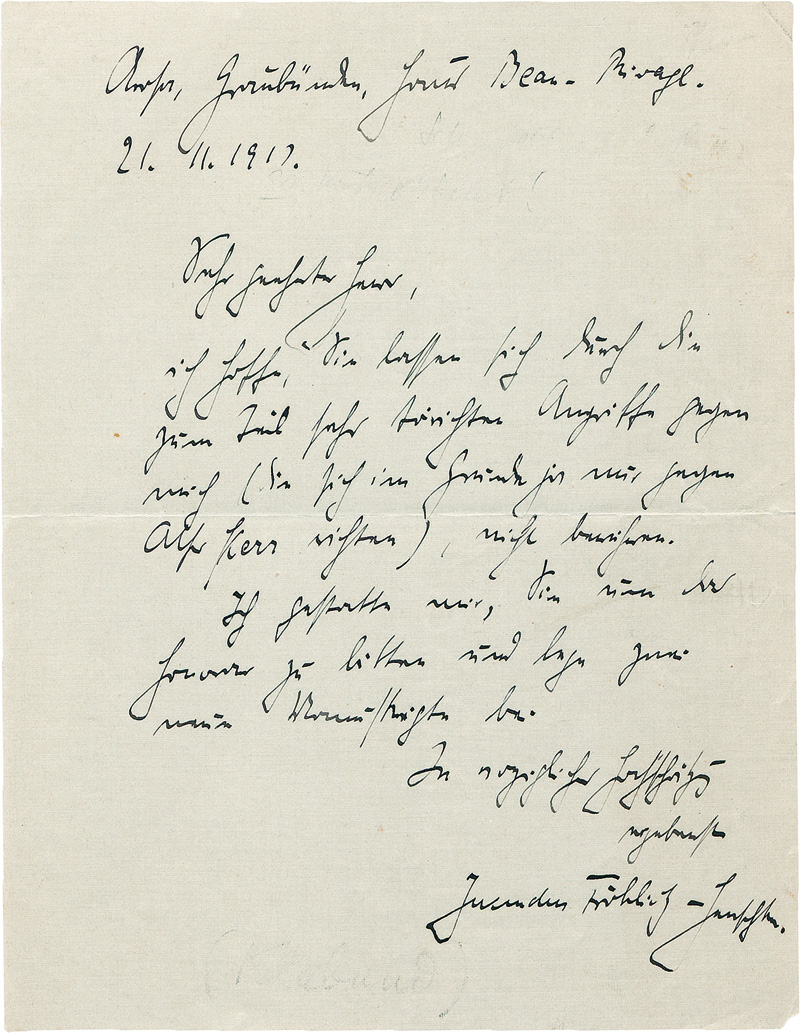 Arosa, Graubünden, Haus Beau-Rivage.
21. 11. 1917.
Sehr geehrter Herr,
ich hoffe, Sie lassen sich durch die
zum Teil sehr törichten Angriffe gegen
mich (die sich im Grunde ja nur gegen
Alfr Kerr richten), nicht beirren.
Ich gestatte mir, Sie um das
Honorar zu bitten und lege zwei
neue Manuskripte bei
In vorzüglicher Hochschätzg
ergebenst
Fröhlich -